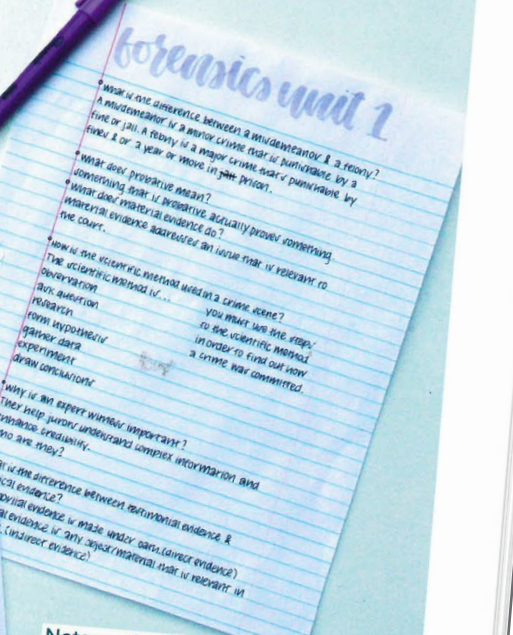 forensics unit 1
• What is the difference between a misdemeanor & a felony?
A misdemeanor is a minor crime that is punishable by a
fine or jail. A felony is a major crime that is punishable by
fines & or a year or more in jail prison.
• What does probative mean?
something that is probative actually proves something.
• What does material evidence do?
material evidence addresses an issue that is relevant to
the court.
• How is the scientific method used in a crime scene?
The scientific method is...
observation
ask question
research
form hypothesis
gather data
experiment
draw conclusions
you must use the steps
to the scientific method
in order to find out how
a crime was committed.
• why is an expert witness important?
They help jurors understand complex information and
enhance credibility.
ho are they?
at is the difference between testimonial evidence &
ical evidence?
monial evidence is made under oath. (direct evidence)
al evidence is any object/material that is relevant in
. (indirect evidence)